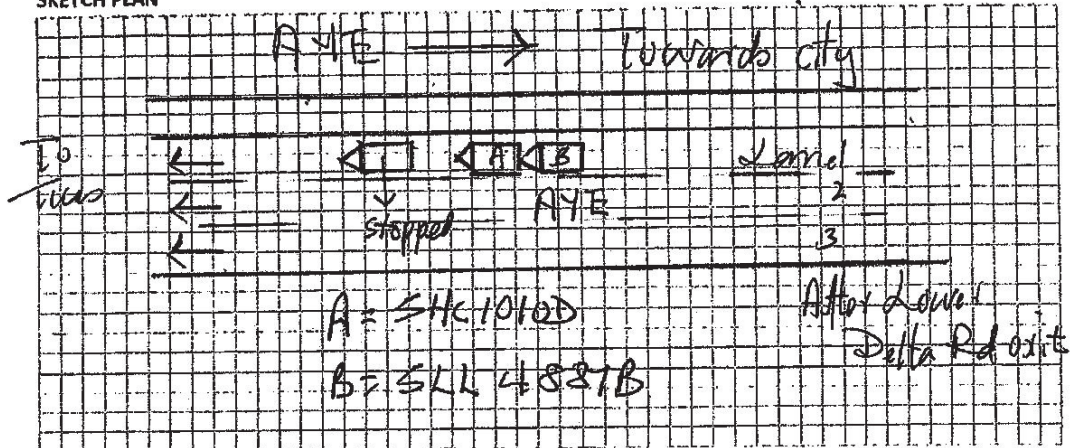 SKETCH PLAN
AYE → Towards city
To Tuas
A B Lane 1
2
AYE
stopped
3
A = SHC1010D
B = SLL 4887B
After Lower
Delta Rd exit